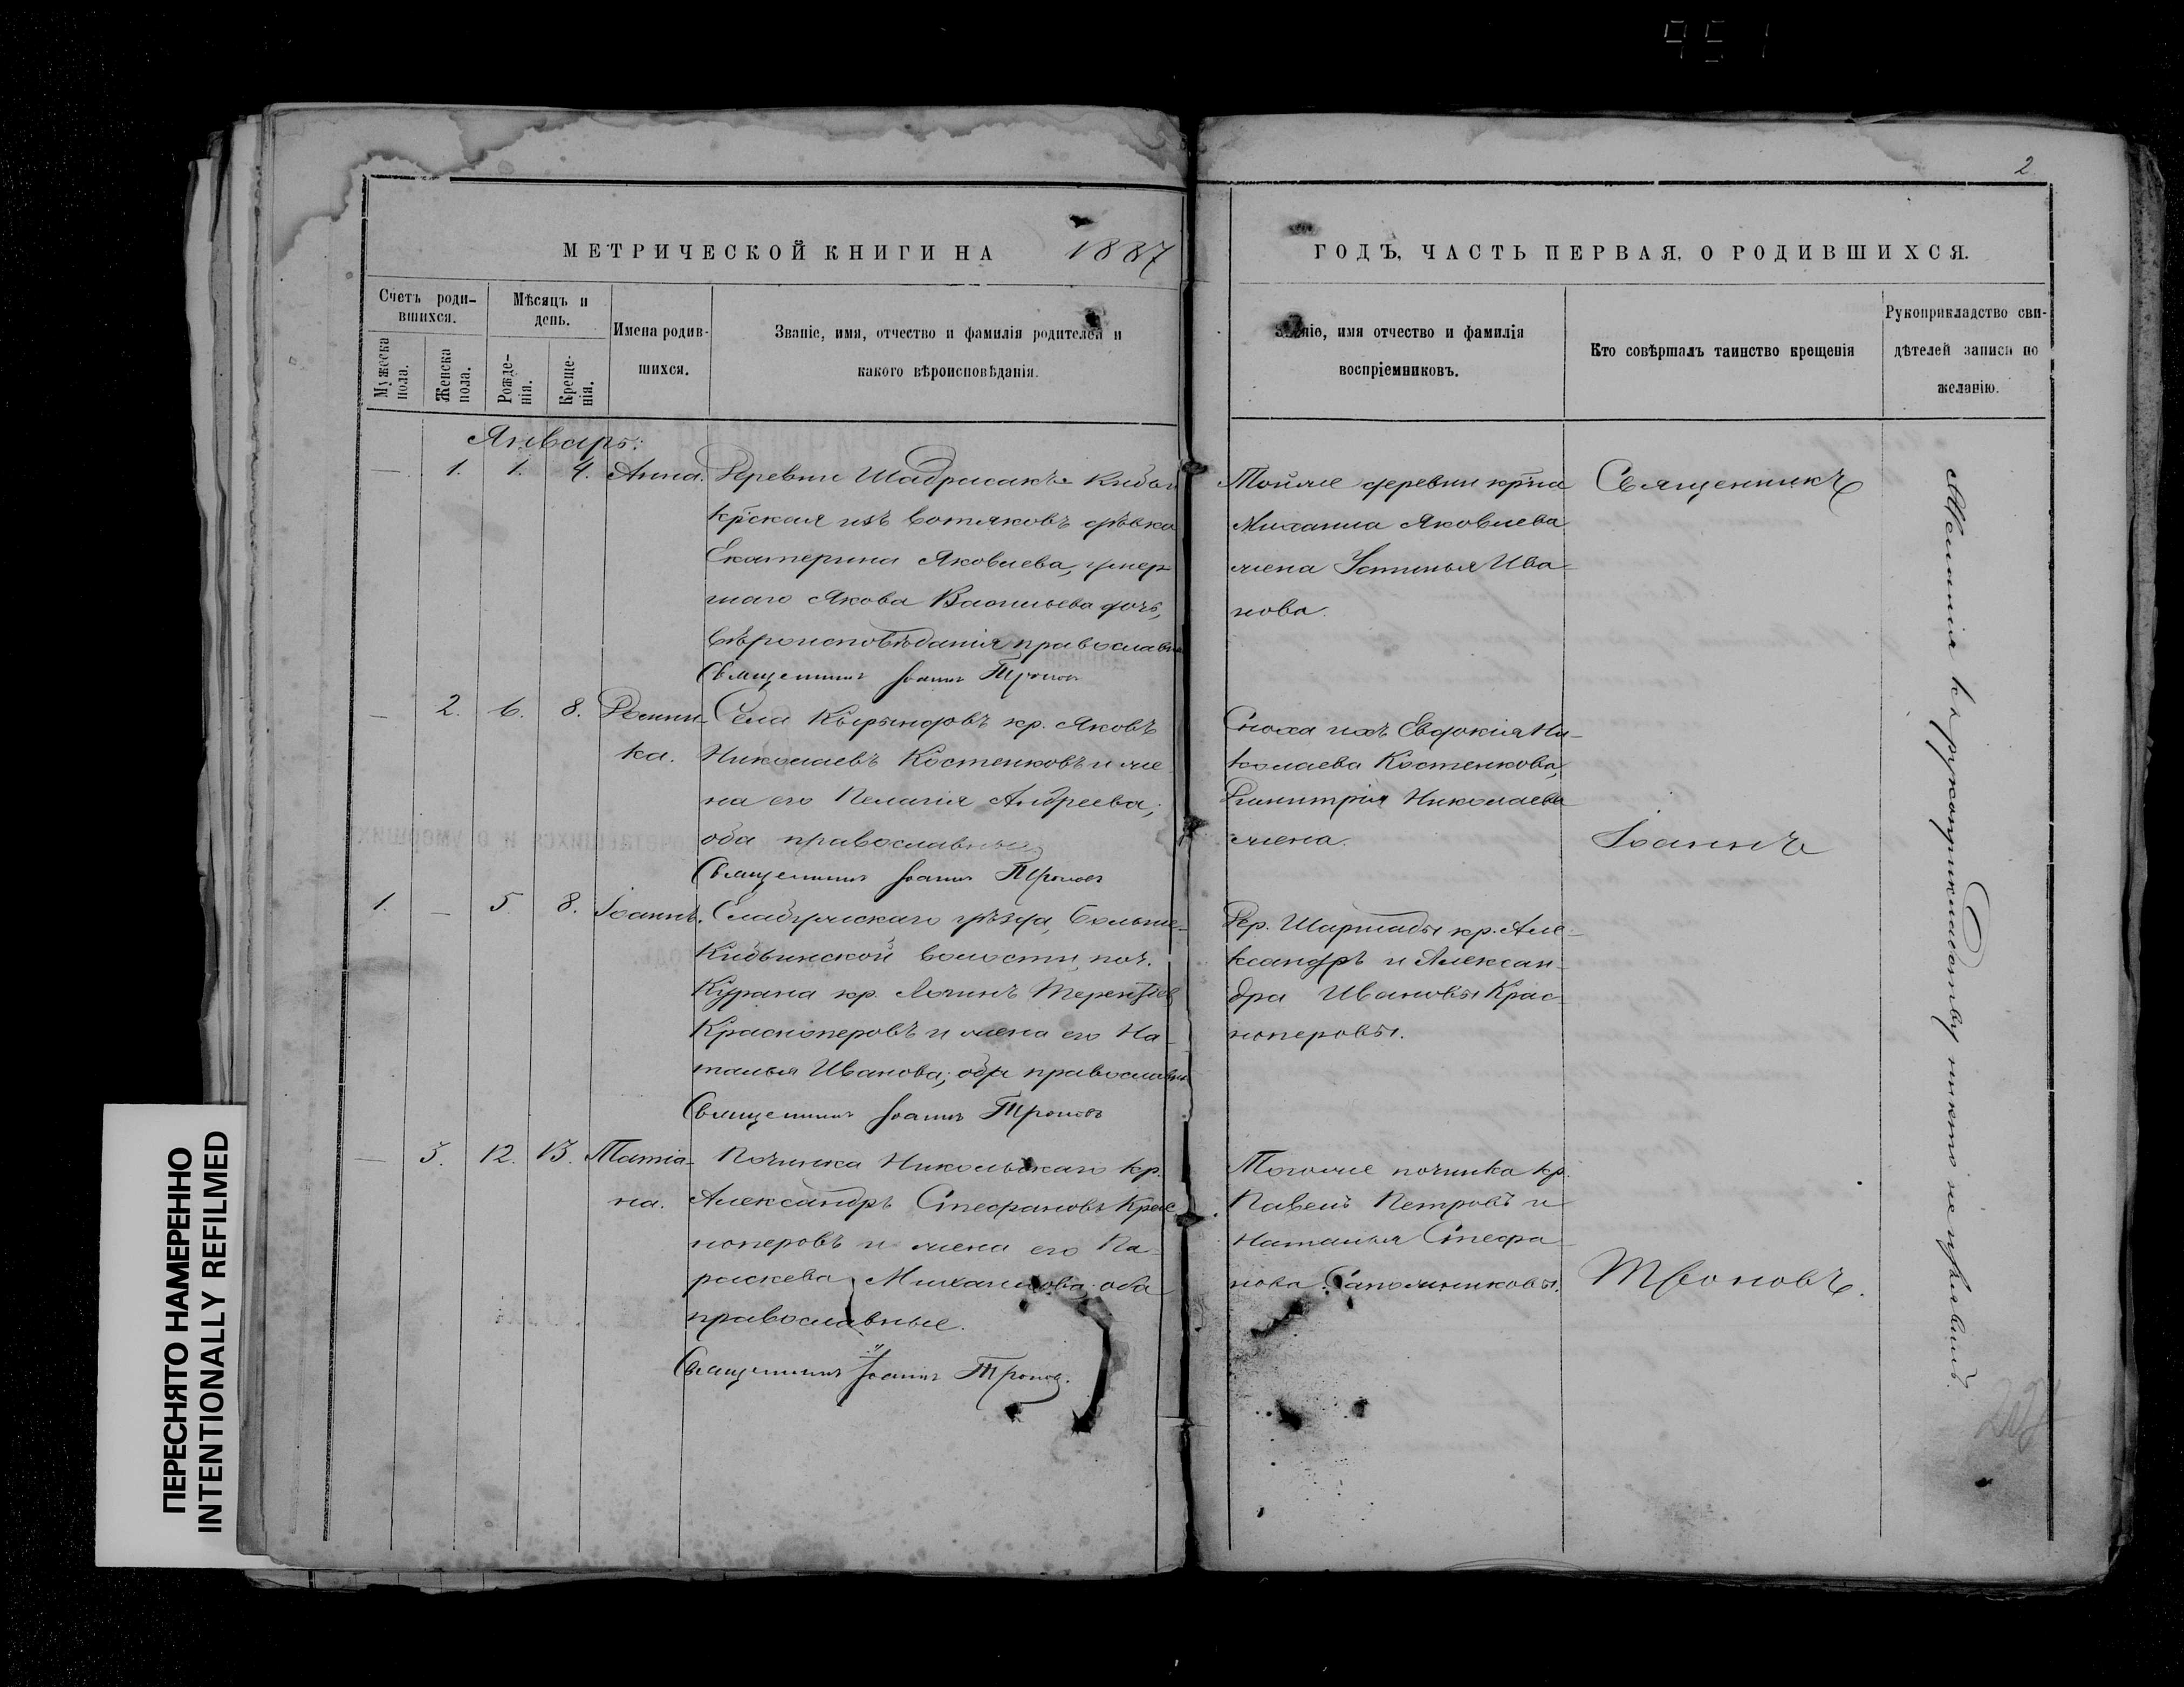 2
МЕТРИЧЕСКОЙ КНИГИ НА 1887
ГОДЪ, ЧАСТЬ ПЕРВАЯ, О РОДИВШИХСЯ.
Счетъ роди-
вшихся.
Мужеска
пола.
Женска
пола.
Мѣсяцъ и
день.
Рожде-
нія.
Креще-
нія.
Имена родив-
шихся.
Званіе, имя, отчество и фамилія родителей и
какого вѣроисповѣданія.
Званіе, имя отчество и фамилія
воспріемниковъ.
Кто совѣршалъ таинство крещенія
Рукоприкладство сви-
дѣтелей записи по
желанію.
Январь:
— 1. 1. 4. Анна. Деревни
кр-ская изъ вотяковъ дѣвка
Екатерина Яковлева, умер-
шаго Якова Васильева дочь,
вѣроисповѣданія православн
Священникъ Іоаннъ Троновъ
Тойже деревни кр-на
Михаила Яковлева
жена Устинья Ива-
нова.
— 2. 6. 8. Домни-
ка.
Села Кырындовъ кр. Яковъ
Николаевъ Костенковъ и же
на его Пелагія Андреева;
оба православные
Священникъ Іоаннъ Троновъ
Сноха ихъ Евдокія Ни-
колаева Костенкова,
Димитрія Николаева
жена.
1. — 5. 8. Іоаннъ. Елабужскаго уѣзда, Больше-
Кибьинской волости, поч.
Курана кр. Логинъ Терентіев
Красноперовъ и жена его На-
талья Иванова; оба православн
Священникъ Іоаннъ Троновъ
Дер. кр. Але-
ксандръ и Алексан-
дра Ивановы Крас-
ноперовы.
— 3. 12. 13. Татіа-
на.
Починка Никольскаго кр.
Александръ Стефановъ Крас
ноперовъ и жена его Па-
раскева Михаилова оба
православные.
Священникъ Іоаннъ Троновъ.
Тогоже починка кр.
Павелъ Петровъ и
Наталья Стефа-
нова Сапожниковы.
Священникъ
Іоаннъ
Троновъ.
Желанія къ рукоприкладству никто не изъявилъ.
ПЕРЕСНЯТО НАМЕРЕННО
INTENTIONALLY REFILMED